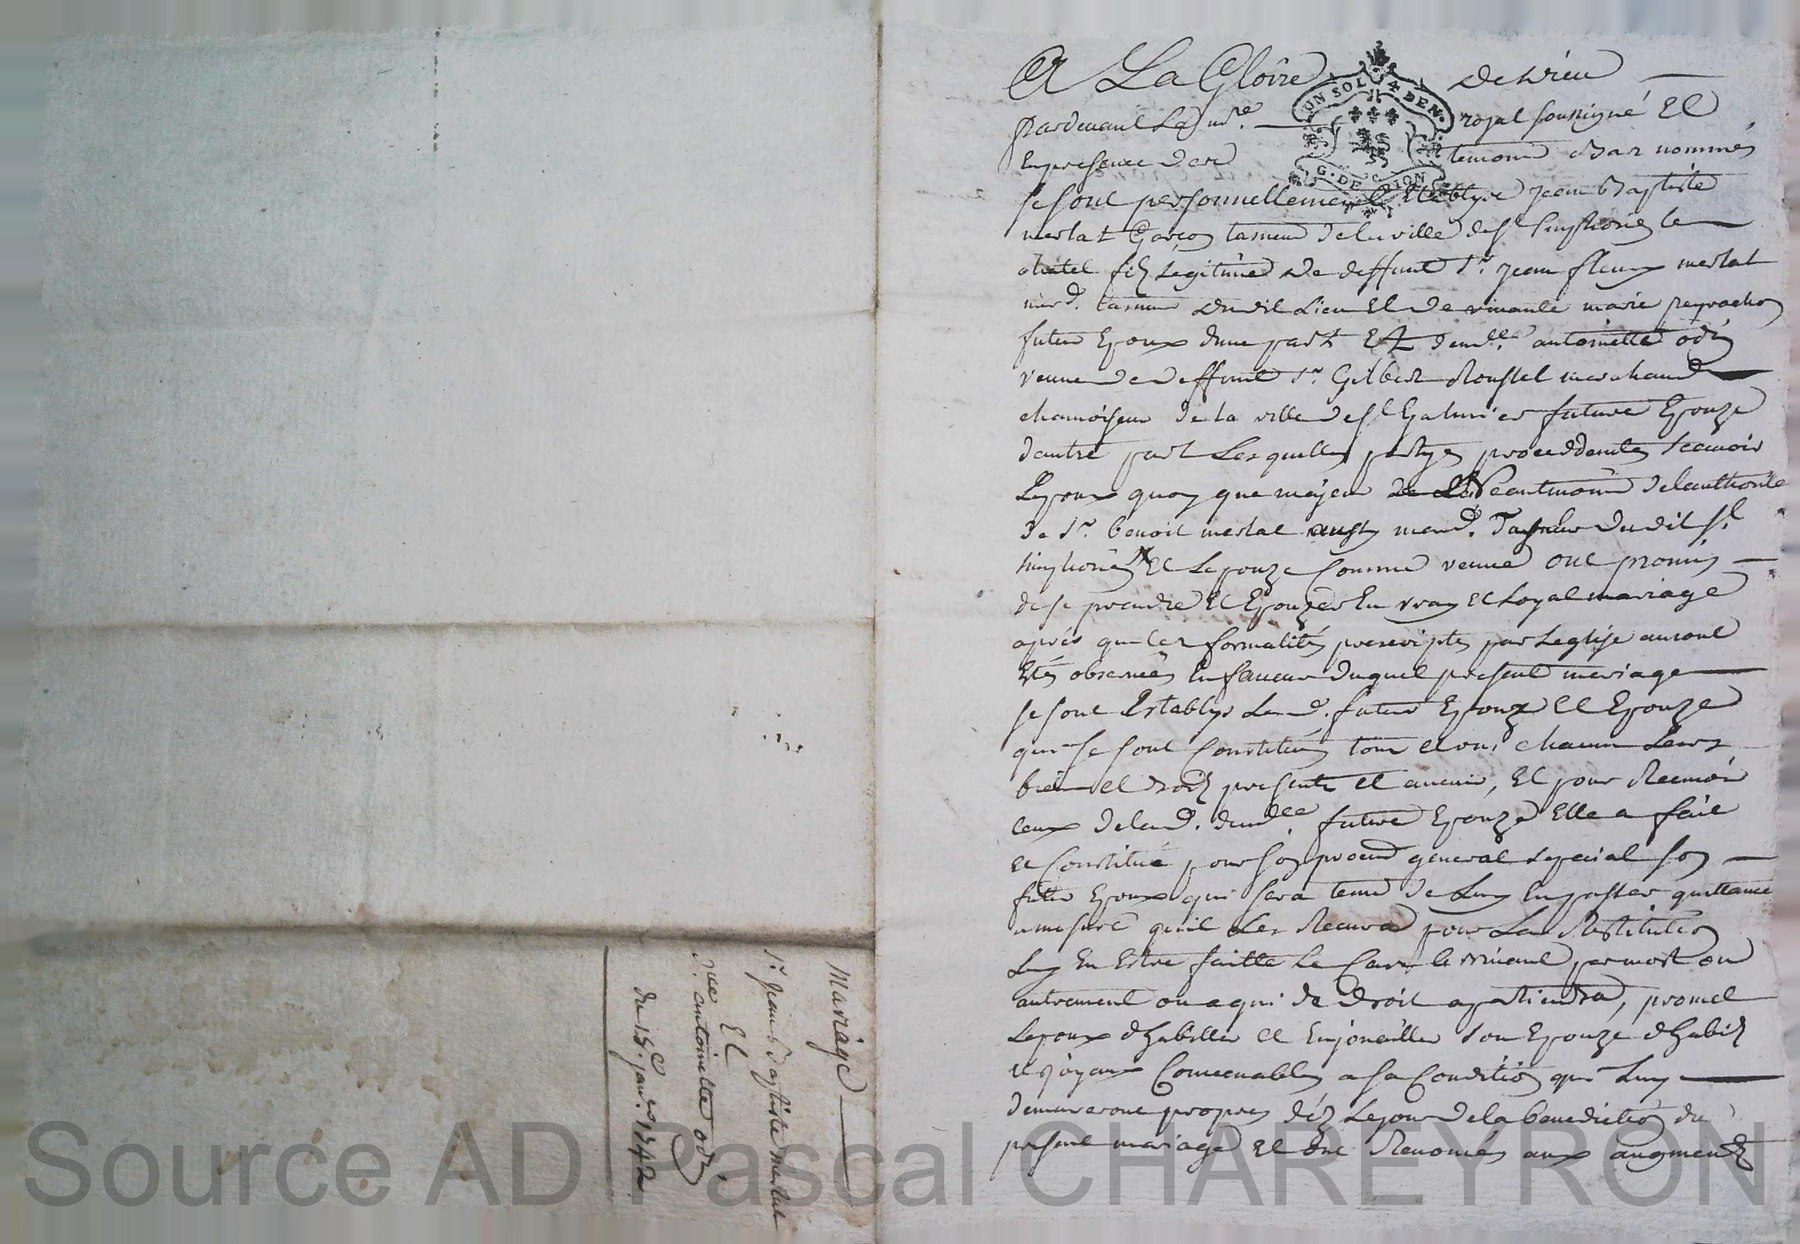 A La Gloire de dieu
UN SOL 4 DEN.
G. DE RION
pardevant Le nre. royal soussigné Et
En presence des temoins Bas nommés
se sont personnellement Etablys jean Baptiste
merlat Garçon taneur de la ville de st
chatel fils Legitime de deffunt sr. jean fleury merlat
mard. taneur dudit Lieu Et de vivante marie peyrachon
futur Epoux dune part Et demlle. antoinette odin
veuve de deffunt sr. Gilbert Roustel marchand
chamoiseur de la ville de st Galmier future Epouze
dautre part Lesquelles partyes proceddantes scavoir
Lepoux quoy que majeur de Lauthorité
de sr. benoit merlat mard. Taneur dudit st
Et Lepouze Comme veuve ont promis
de se prendre Et Epouzer En vray Et Loyal mariage
aprés que les formalités prescriptes par Leglise auront
Etés observées En faveur duquel present mariage
se sont Establys Lesd. futur Epoux Et Epouze
qui se sont Constitués tous et uns chacun Leurs
biens et droits presents et avenir, Et pour Recevoir
ceux de lad. demlle. future Epouze Elle a fait
et Constitué pour son procur general Special son
futur Epoux qui sera tenu de Luy En passer quittance
a mesure quil Les Recevra pour La Restitution
Luy En Estre faitte Le Cas arrivant par mort ou
autrement ou a qui de droit apartiendra, promet
Lepoux dhabiller et Enjoüailler son Epouze dhabits
et joyaux Convenables a sa Condition qui Luy
demeureront propres dès Le jour de la benediction du
present mariage Et ont Renoncés aux augments
Mariage
sr. jean Baptiste merlat
Et
dlle antoinette odin
du 15e. janr. 1742
Source AD Pascal CHAREYRON